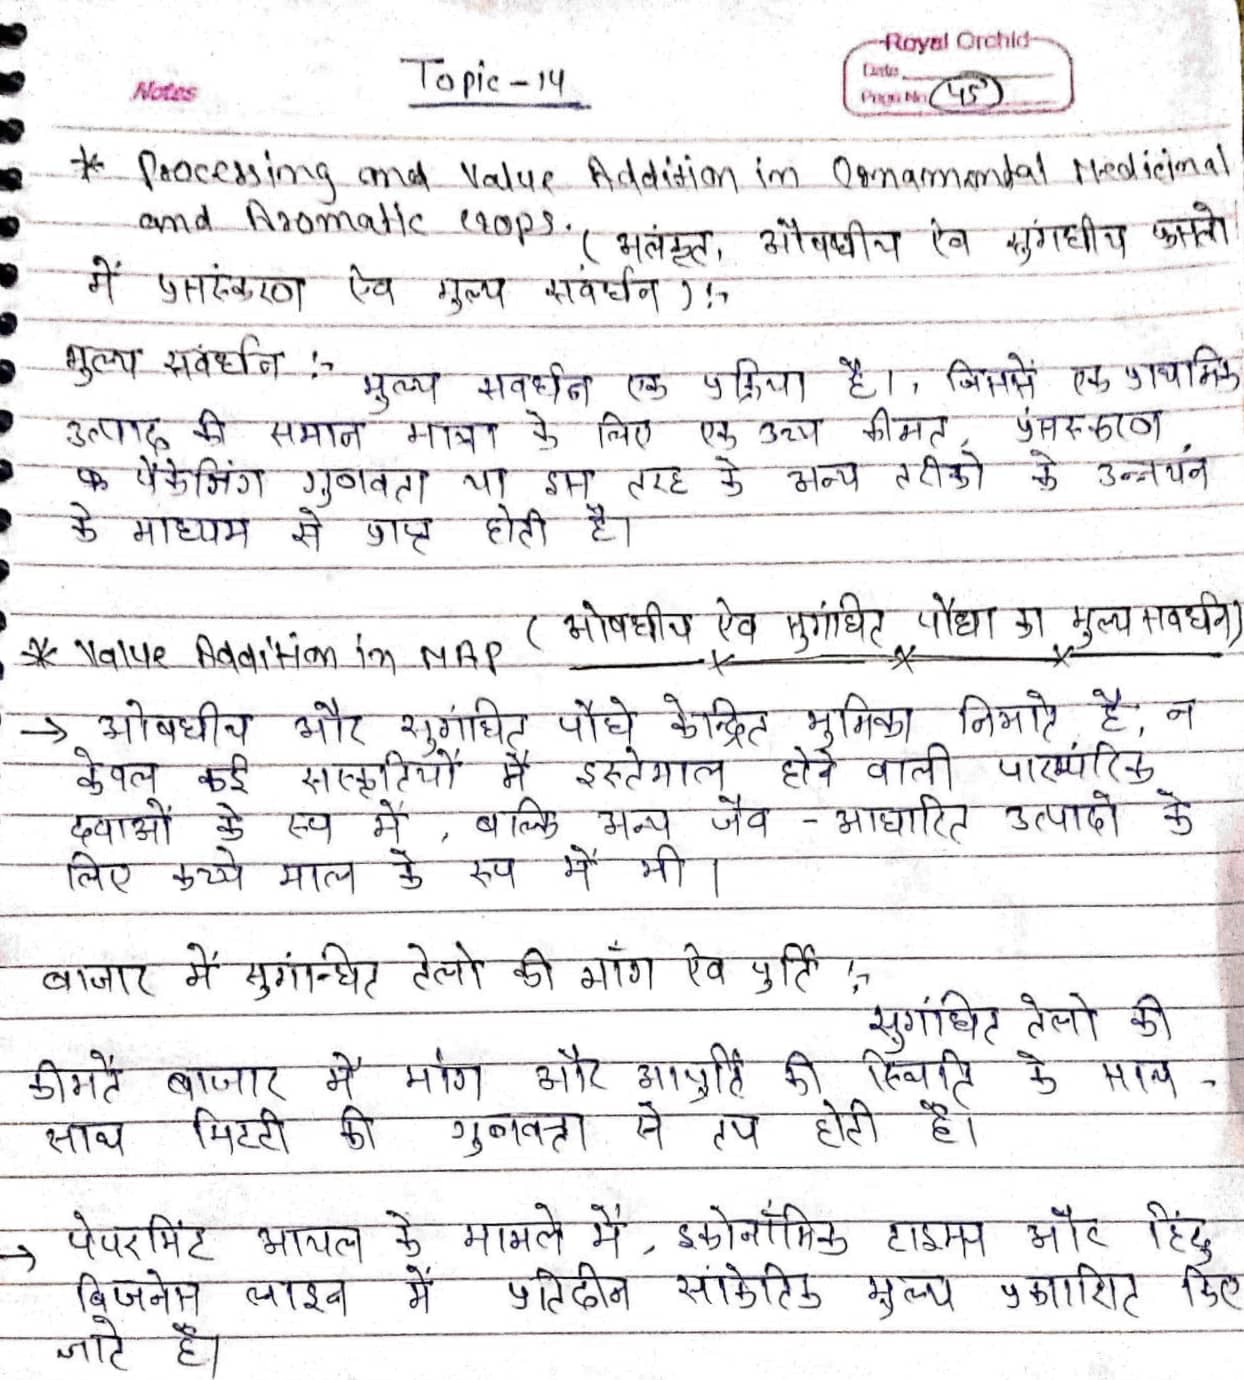 Royal Orchid
Notes
Topic - 14
Date
Page No. 45
* Processing and Value Addition in Ornamnental Medicinal
and Aromatic crops. (अलंकृत, औषधीय ऐव सुगंधीय फसलो
में प्रसंस्करण ऐव मुल्य संवर्धन ) :-
मुल्य सवर्धन :-
मुल्य सवर्धन एक प्रक्रिया है।, जिसमें एक प्राथमिक
उत्पाद की समान मात्रा के लिए एक उच्च कीमत, प्रंसस्करण
पैकेजिंग गुणवता या इस तरह के अन्य तरीको के उन्नयन
के माध्यम से प्राप्त होती है।
* Value Addition in MAP ( ओषधीय ऐव सुगंधित पौधा का मुल्य सवर्धन)
→ ओषधीय और सुगंधित पौधे केन्द्रित भुमिका निभाते है, न
केवल कई सस्कृतियों मै इस्तेमाल होने वाली पारम्परिक
दवाओं के रूप में, बल्कि अन्य जैव - आधारित उत्पादो के
लिए कच्चे माल के रूप में भी।
बाजार में सुगंन्धित तेलो की माँग ऐव पुर्ति :-
सुगंधित तेलो की
कीमतें बाजार मै मांग और आपुर्ति की स्थिति के साथ -
साथ मिटटी की गुणवत्ता से तय होती है।
→ पेपरमिंट आयल के मामले में, इकोनॉमिक टाइम्स और हिंदु
बिजनेस लाइन में प्रतिदीन सांकेतिक मुल्य प्रकाशित किए
जाते है।